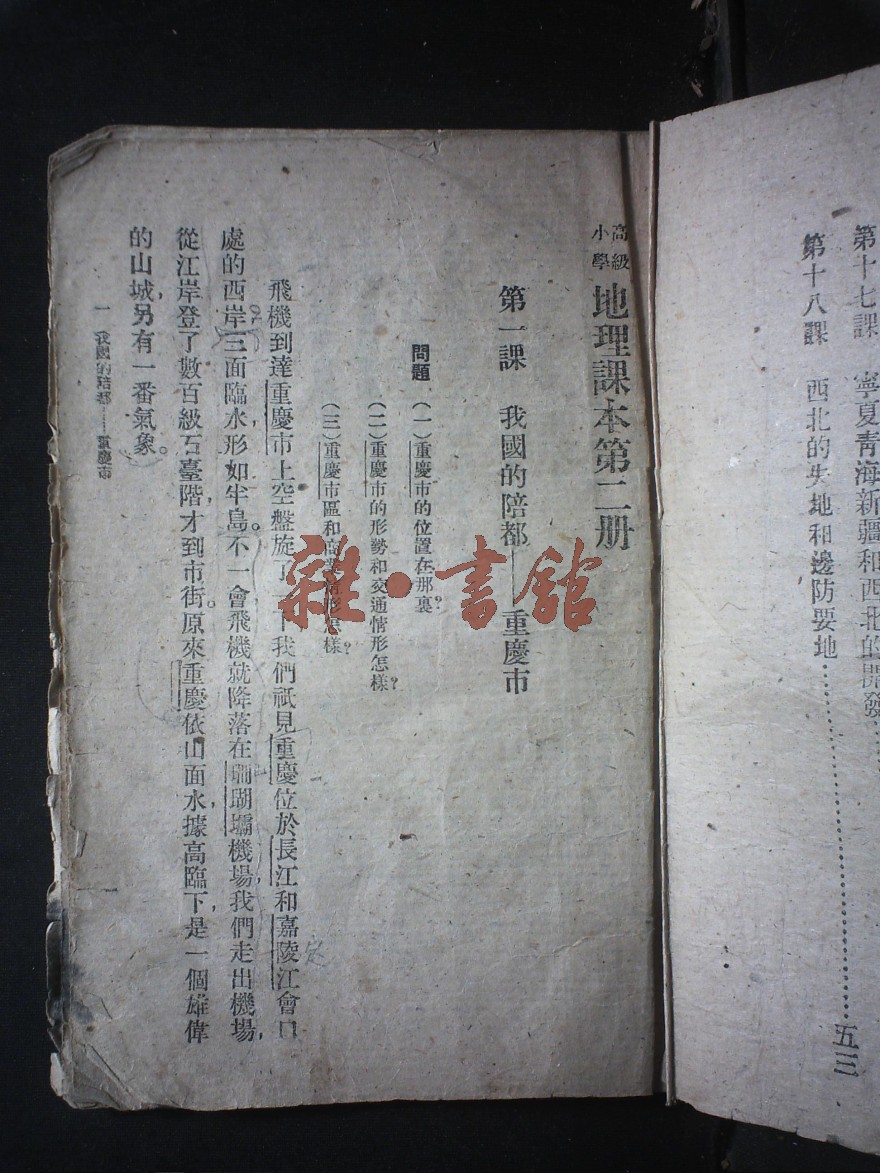 第十七課　寧夏青海新疆和西北的開發……
第十八課　西北的失地和邊防要地……………………五三
高級小學 地理課本第二册
第一課　我國的陪都——重慶市
問題　（一）重慶市的位置在那裏？
（二）重慶市的形勢和交通情形怎樣？
（三）重慶市區和商業情形怎樣？
飛機到達重慶市上空盤旋了一下，我們祇見重慶位於長江和嘉陵江會口
處的西岸，三面臨水，形如半島。不一會，飛機就降落在珊瑚壩機場，我們走出機場，
從江岸登了數百級石臺階，才到市街。原來重慶依山面水，據高臨下，是一個雄偉
的山城，另有一番氣象。
一　我國的陪都——重慶市
雜·書館